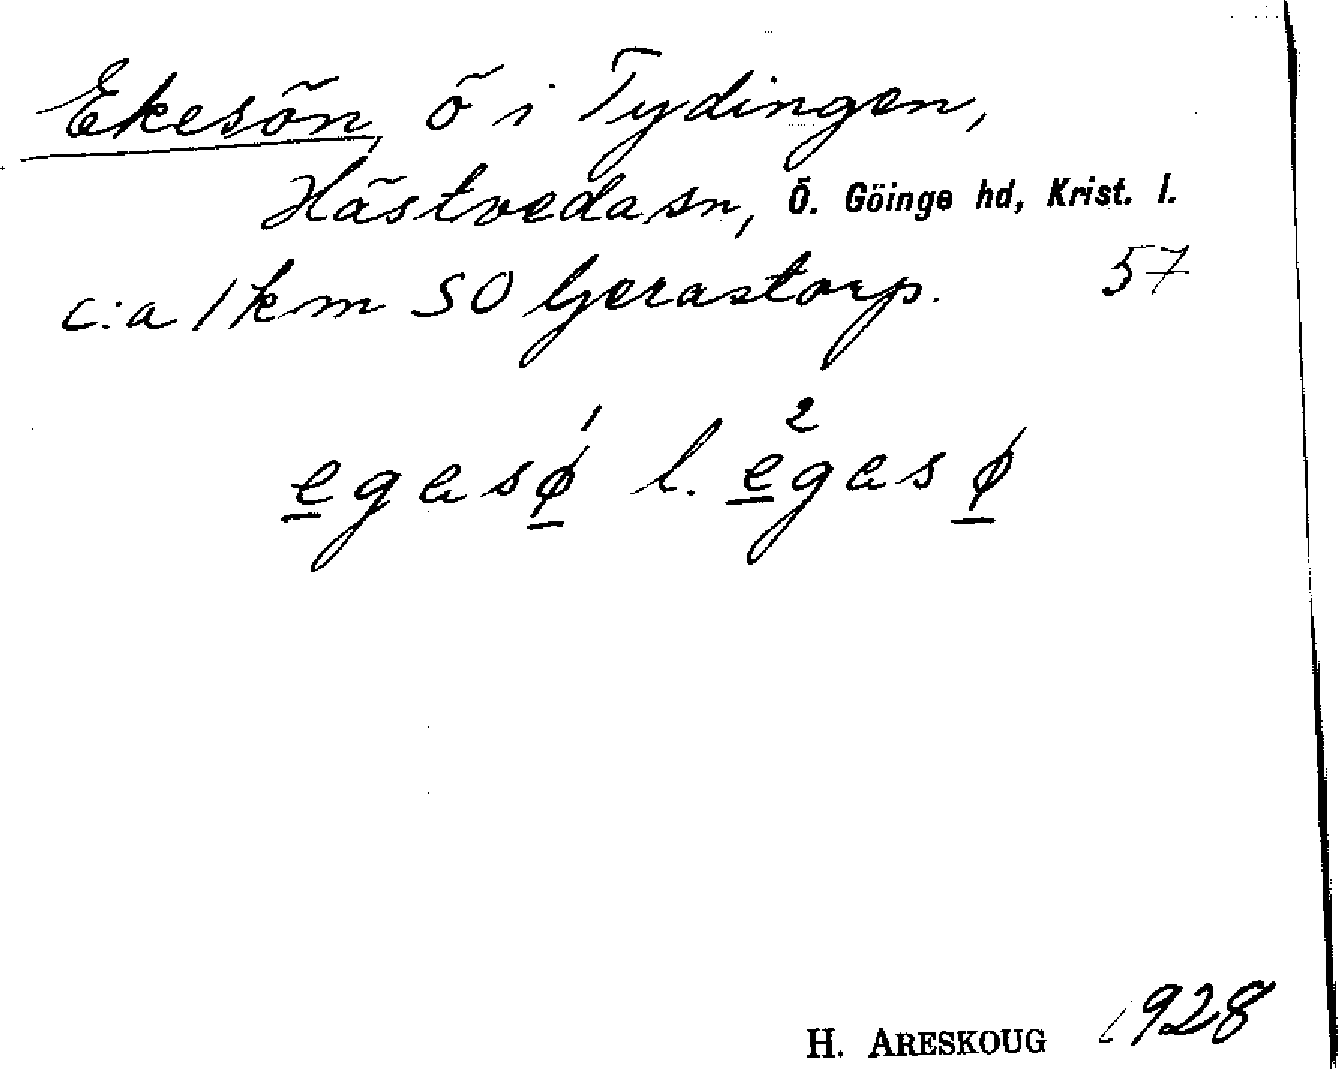 Ekesön, ö i Tydingen,
Hästveda sn, Ö. Göinge hd, Krist. l.
c:a 1 km SO Gerastorp. 57
e̲gɐsǿ̲ l. e̲²gɐsø̲
H. ARESKOUG 1928